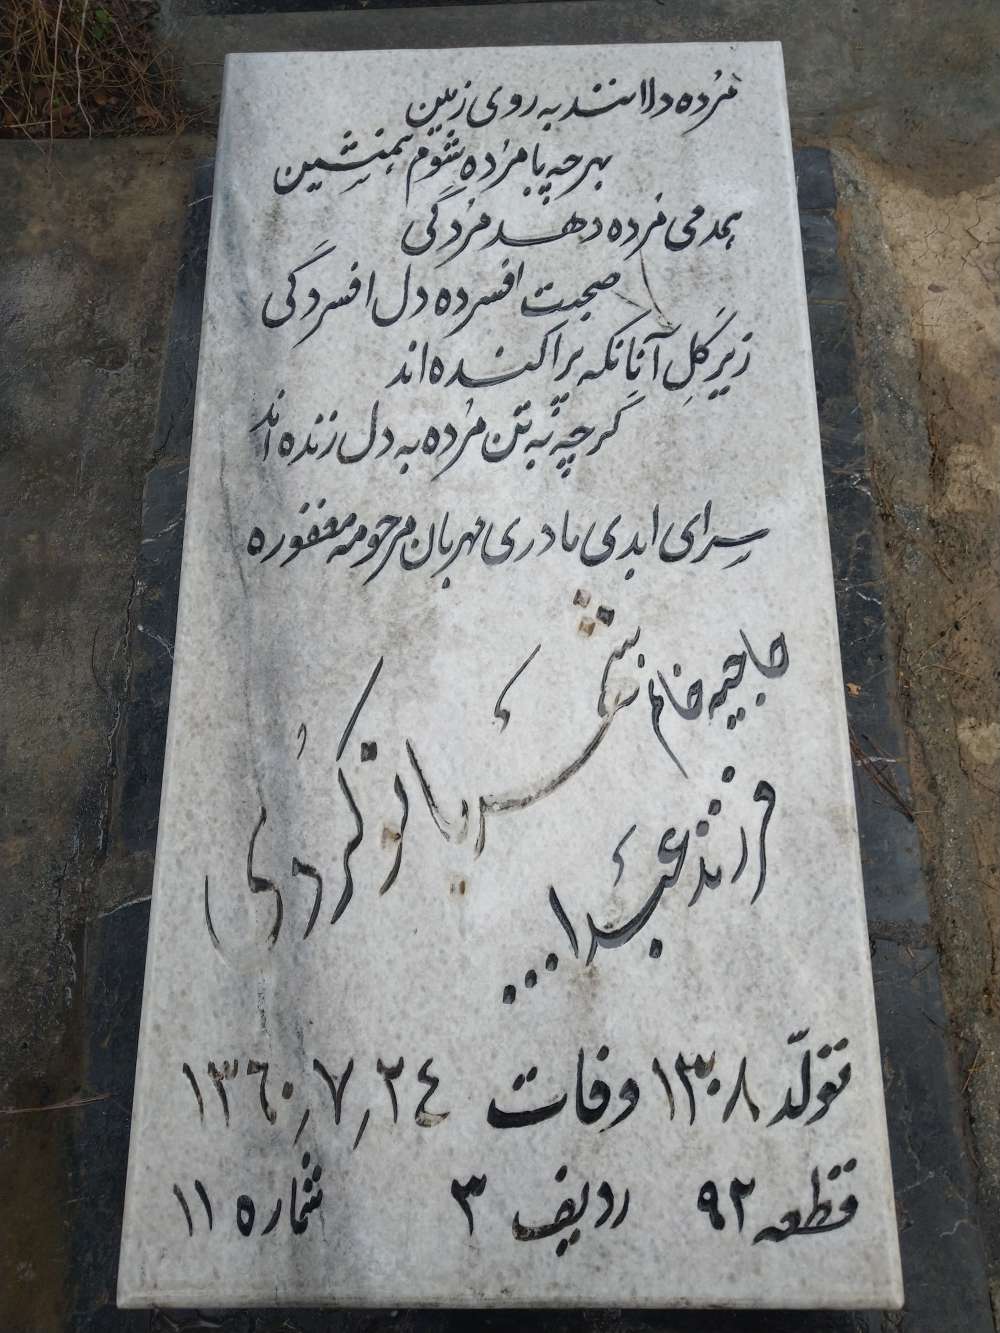 مُرده دلانند به روی زمین
بهر چه با مُرده شوم همنشین
همدمی مُرده دهد مُردگی
صحبت افسرده دل افسردگی
زیر گِلِ آنانکه پراکنده اند
گرچه به تن مُرده به دل زنده اند
سرای ابدی مادری مهربان مرحومه مغفوره
حاجیه خانم شهربانو کُردی
فرزند عبدا...
تولّد ۱۳۰۸ وفات ۱۳۶۰/۷/۲۴
قطعه ۹۲ ردیف ۳ شماره ۱۱